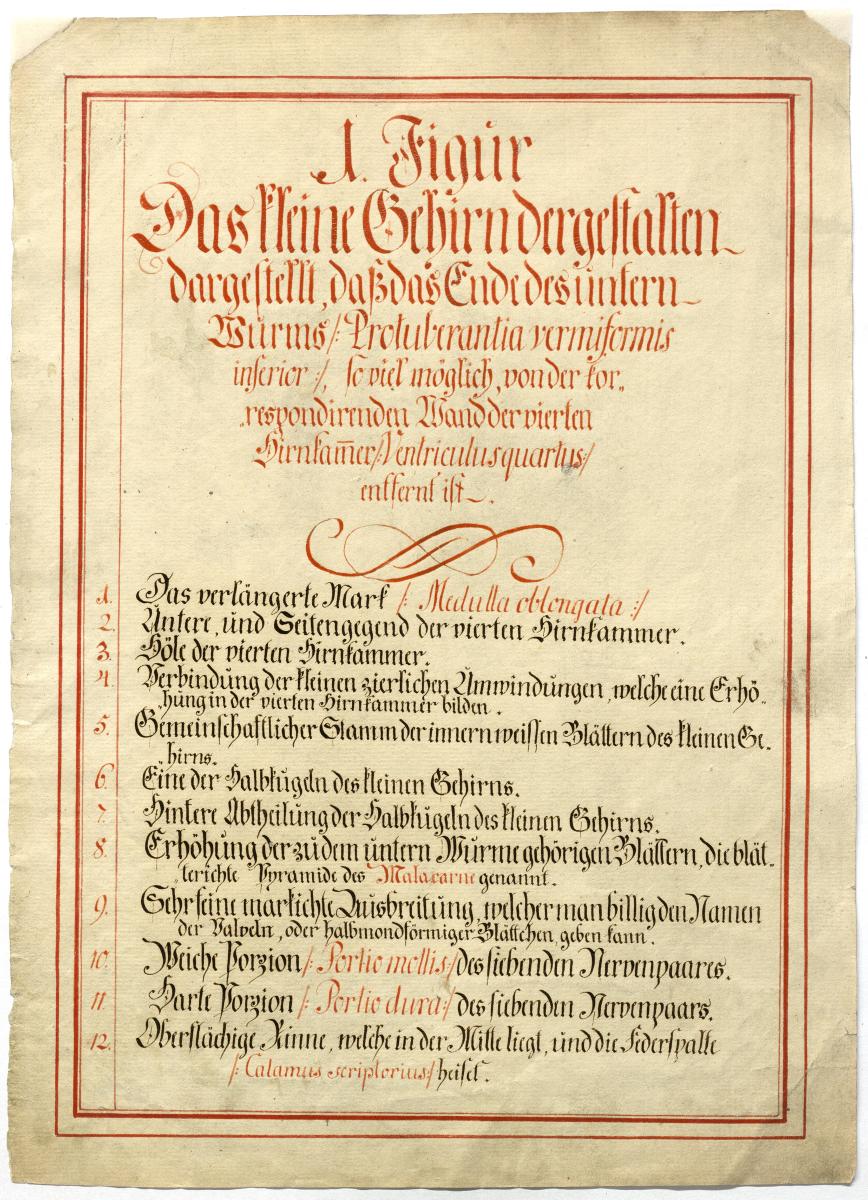 1. Figur
Das kleine Gehirn dergestalten
dargestellt, daß das Ende des untern
Wurms /: Protuberantia vermiformis
inferior :/, so viel möglich, von der kor„
„respondirenden Wand der vierten
Hirnkam̅er /: Ventriculus quartus :/
entfernt ist.
1. Das verlängerte Mark /: Medulla oblongata :/
2. Untere, und Seitengegend der vierten Hirnkammer.
3. Höle der vierten Hirnkammer.
4. Verbindung der kleinen zierlichen Umwindungen, welche eine Erhö„
„hung in der vierten Hirnkammer bilden.
5. Gemeinschaftlicher Stamm der innern weissen Blättern des kleinen Ge„
„hirns.
6. Eine der Halbkugeln des kleinen Gehirns.
7. Hintere Abtheilung der Halbkugeln des kleinen Gehirns.
8. Erhöhung der zu dem untern Wurme gehörigen Blättern, die blät„
„terichte Pyramide des Malacarne genannt.
9. Sehr feine markichte Ausbreitung, welcher man billig den Namen
der Valveln, oder halbmondförmiger Blättchen, geben kann.
10. Weiche Porzion /: Portio mollis :/ des siebenden Nervenpaares.
11. Harte Porzion /: Portio dura :/ des siebenden Nervenpaars.
12. Oberflächige Rinne, welche in der Mitte liegt, und die Federspalte
/: Calamus scriptorius :/ heiset.